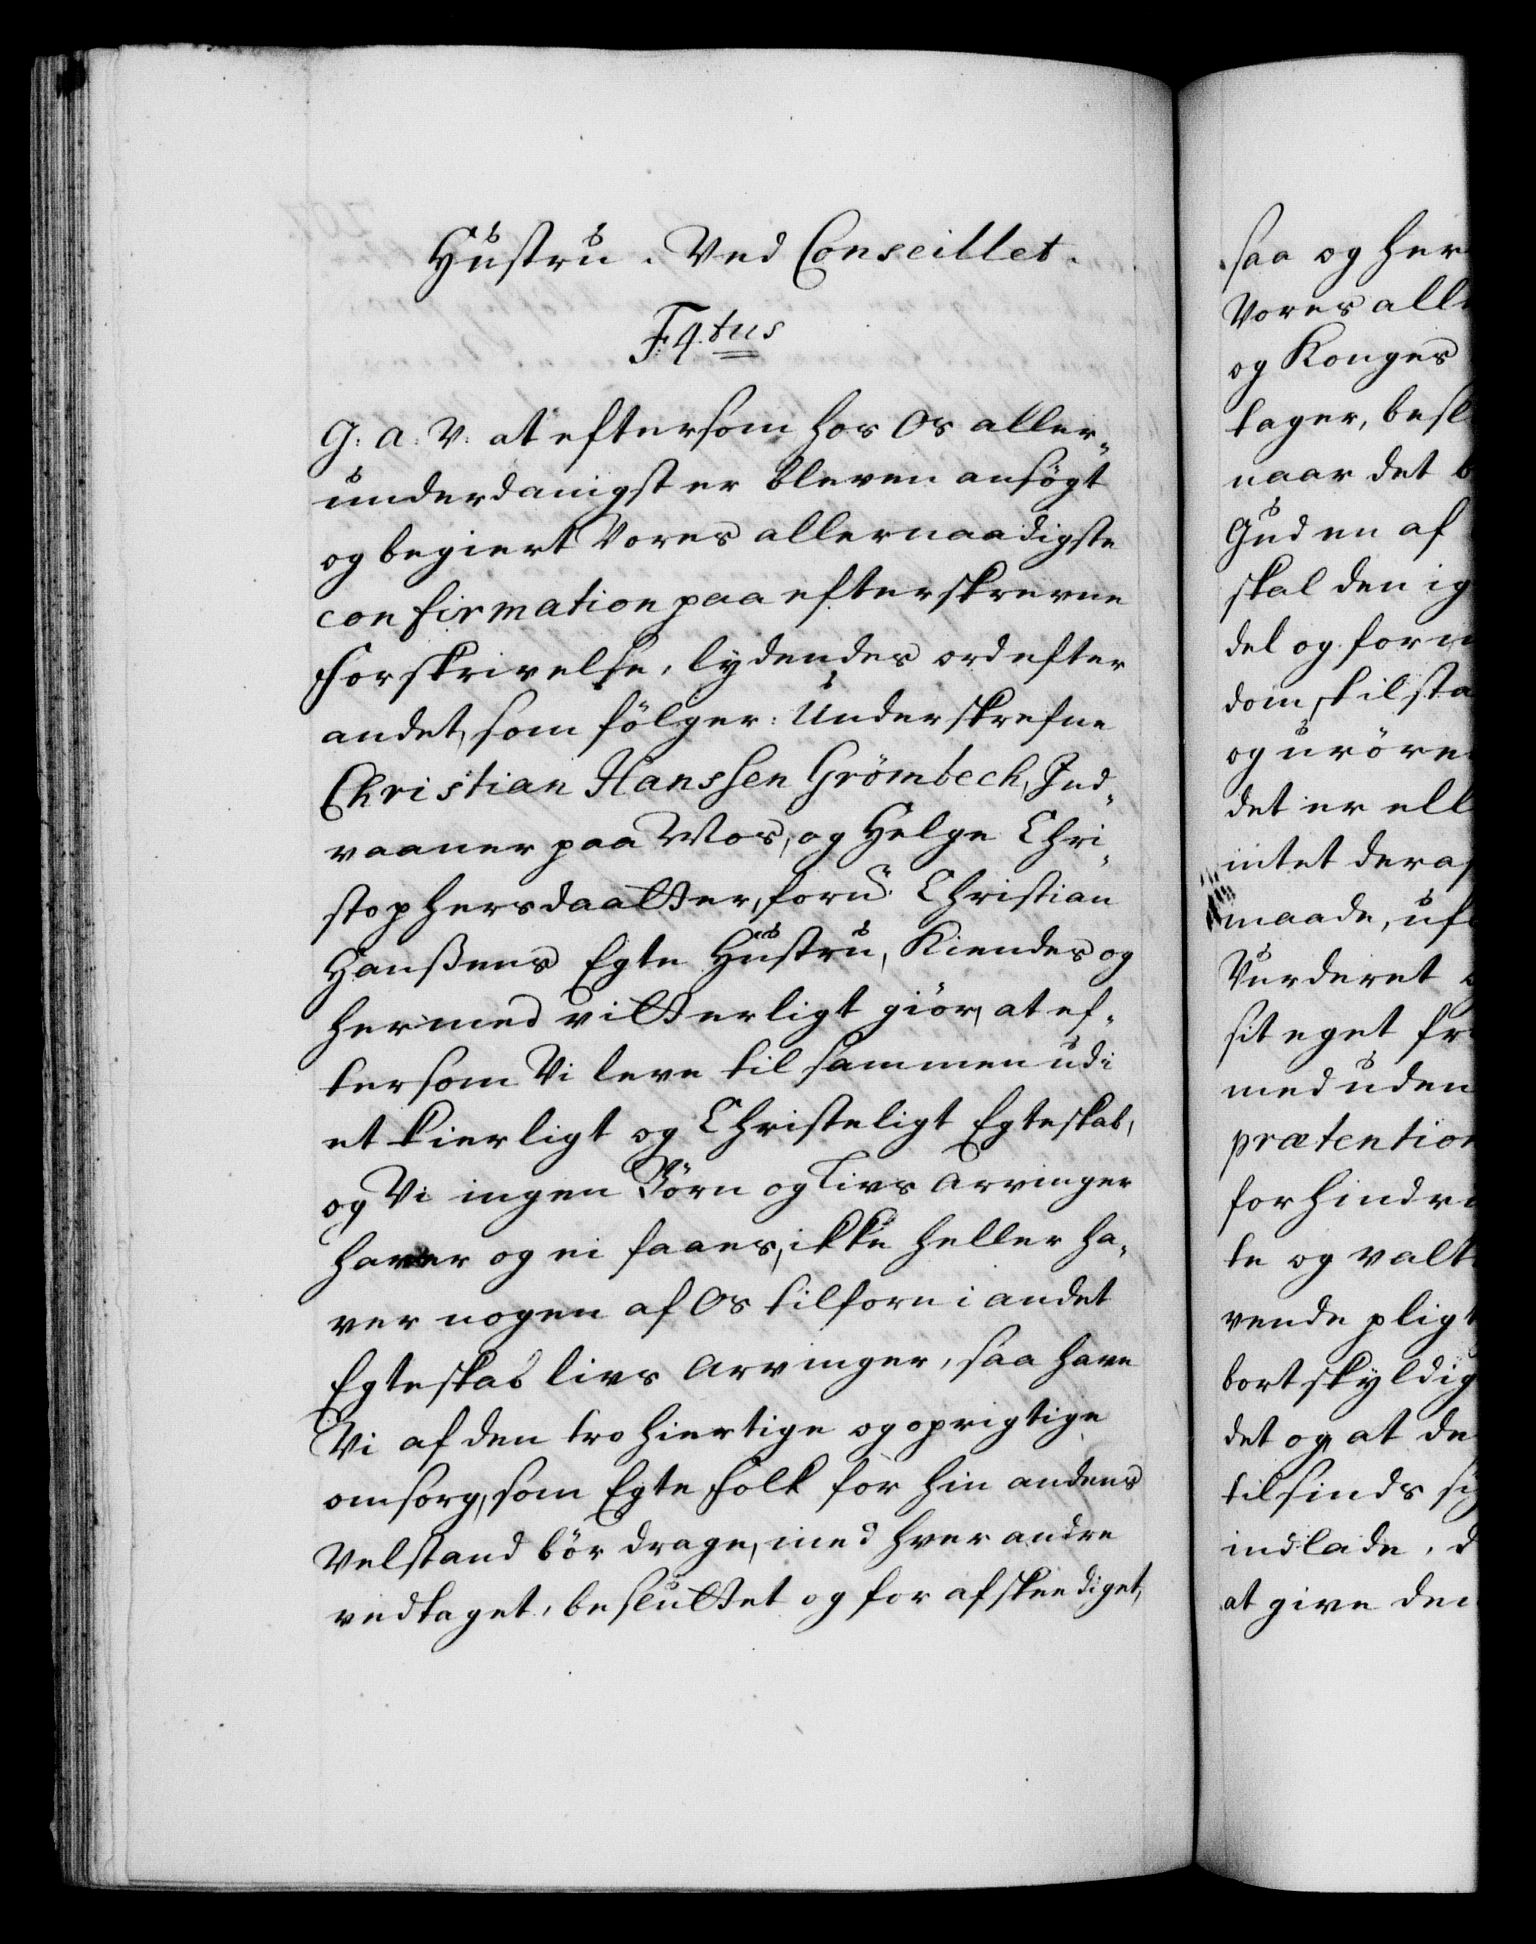 Hustru. Ved Conseillet.
F: 4.tus
G: A: V: at eftersom hos Os aller-
underdanigst er bleven ansögt
og begiert Vores allernaadigste
confirmation paa efterskrevne
Forskrivelse, lydendes ord efter
andet, som fölger: Underskrefne
Christian Hanssen Grömbech, Ind-
vaaner paa Mors, og Helge Chri-
stophersdaatter, forn: Christian
Hanßens Egte Hustru, Kiendes og
hermed vitterligt giör, at ef-
tersom Vi leve tilsammen udi
et kierligt og Christeligt Egteskab,
og Vi ingen Börn og Livs Arvinger
haver og ei faaer, ikke heller ha-
ver nogen af Os tilforn i andet
Egteskab livs Arvinger, saa have
Vi af den trohiertige og oprigtige
omsorg, som Egte Folk for hin andens
Velstand bör drage, med hver andre
vedtaget, besluttet og for afskeediget,
saa og her
Vores all
og Konges
tager, besl
naar det b
Gud en af
skal den
del og
dom, tilsta
og uröre
det er ell
intet deraf
maade, uf
Vurderet
sit eget fr
med uden
prætention
forhindre
te og valt
rende pligt
bortskyldig
det og at de
tilsinds sig
indlade, d
at give den